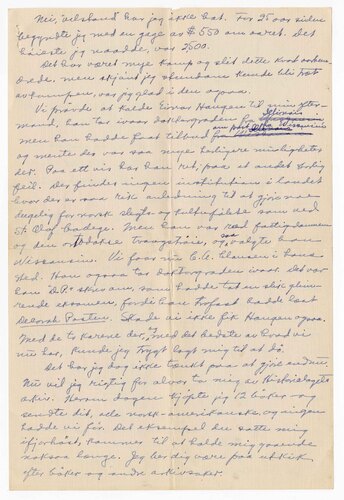 Nei, velstand har jeg ikke hat. For 25 aar siden
begyndte jeg med en gage av $550 om aaret. Det
høieste jeg naadde, var 2500.
Det har været mye kamp og slit dette hvad arkene
, men skjønt jeg stundom kunde bli træt
av kampen, var jeg glad i den ogsaa.
Vi prøvde at kalde Einar Haugen til min efter-
mand, han tar ivaar doktorgraden fra Illinois
men han hadde faat tilbud
og mente der var saa mye herligere muligheter
der. Paa ett vis har han ret, paa et andet sørlig
feil. Der findes ingen institution i landet
hvor der er saa rik anledning til at gjøre noe
dugelig for norsk slegts og kulturforhold som ved
St. Olaf College. Men han var ræd fattigdommen
og den ortodokse trangsynte, og saa valgte han
Wisconsin. Vi foar nu C.A. Clausen i hans
sted. Han ogsaa tar doktorgraden ivaar. Det var
han "D.P." skrev om, som hadde tat en slik glim-
rende eksamen, fordi han forfast hadde læst
Decorah Posten. Skade vi ikke fik Haugen ogsaa.
Med de to karene der, og med det bedste av hvad vi
nu har, kunde jeg trygt lagt mig til at dø.
Det har jeg dog ikke tænkt paa at gjøre endnu.
Nu vil jeg rigtig for alvor ta mig av Historielagets
arkiv. Herom dagen kjøpte jeg 12 bøker og
sendte dit, alle norsk-amerikanske, og ingen
hadde vi før. Det eksempel du satte mig
ifjorhøst, kommer til at holde mig gaaende
nokså længe. Jeg bør dig være paa utkik
efter bøker og andre arkivsaker.